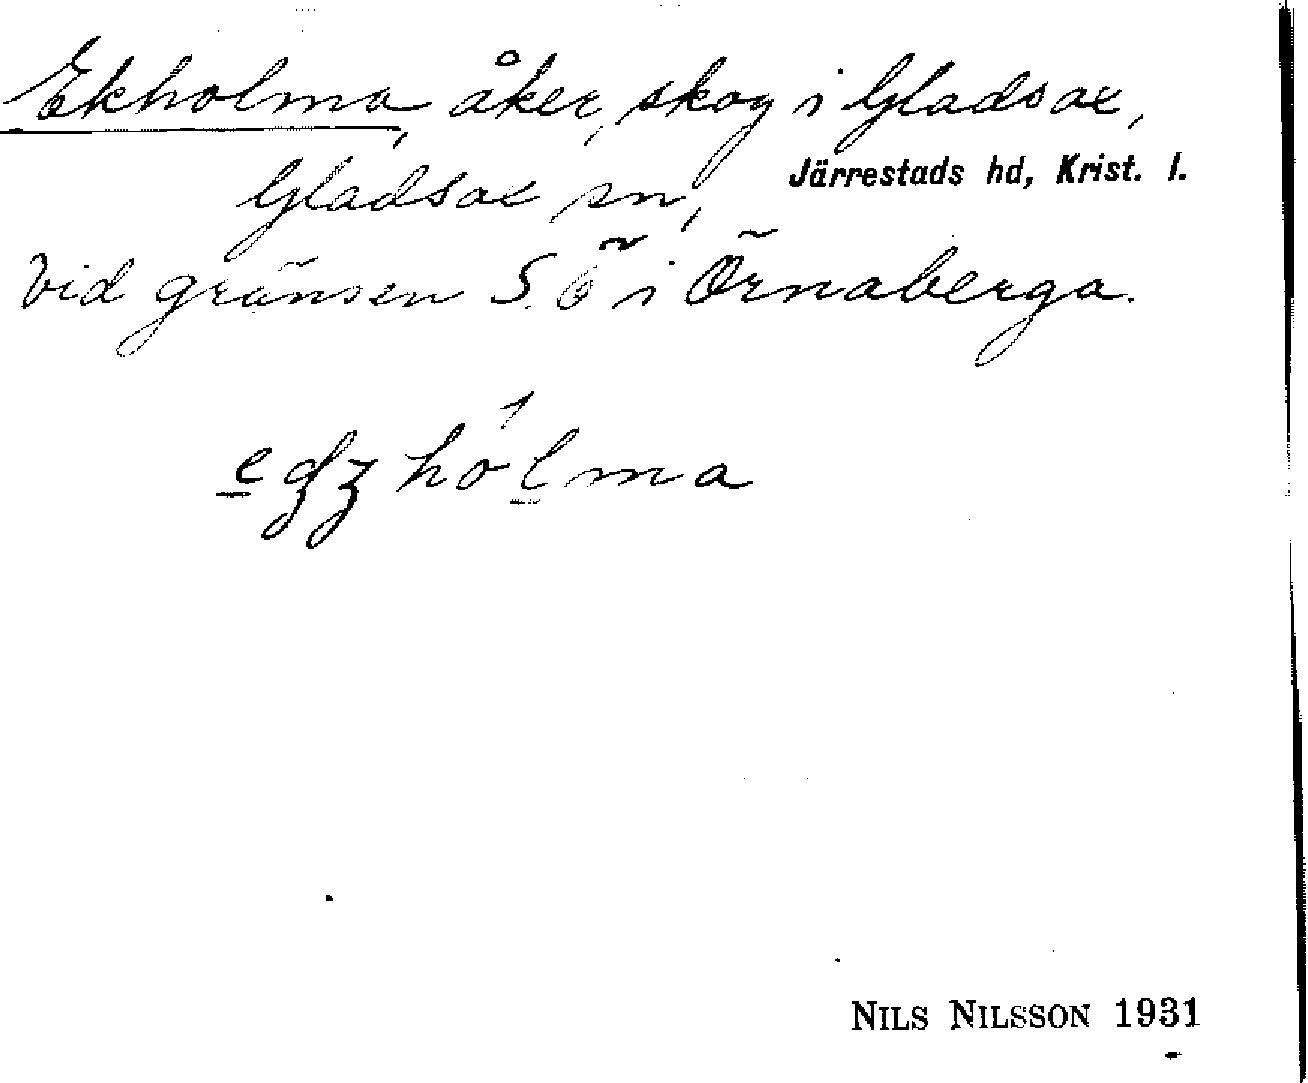 Ekholma, åker, skog i Gladsax,
Gladsax sn, Järrestads hd, Krist. l.
Vid gränsen S.Ö i Örnaberga.
NILS NILSSON 1931